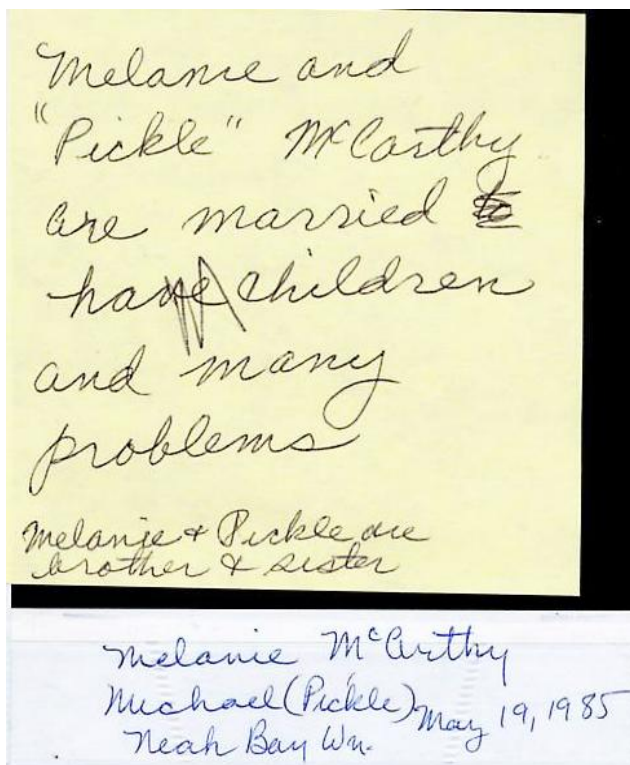 Melanie and
"Pickle" McCarthy
are married to
have children
and many
problems
Melanie & Pickle are
brother & sister
Melanie McCarthy
Michael (Pickle) May 19, 1985
Neah Bay Wn.